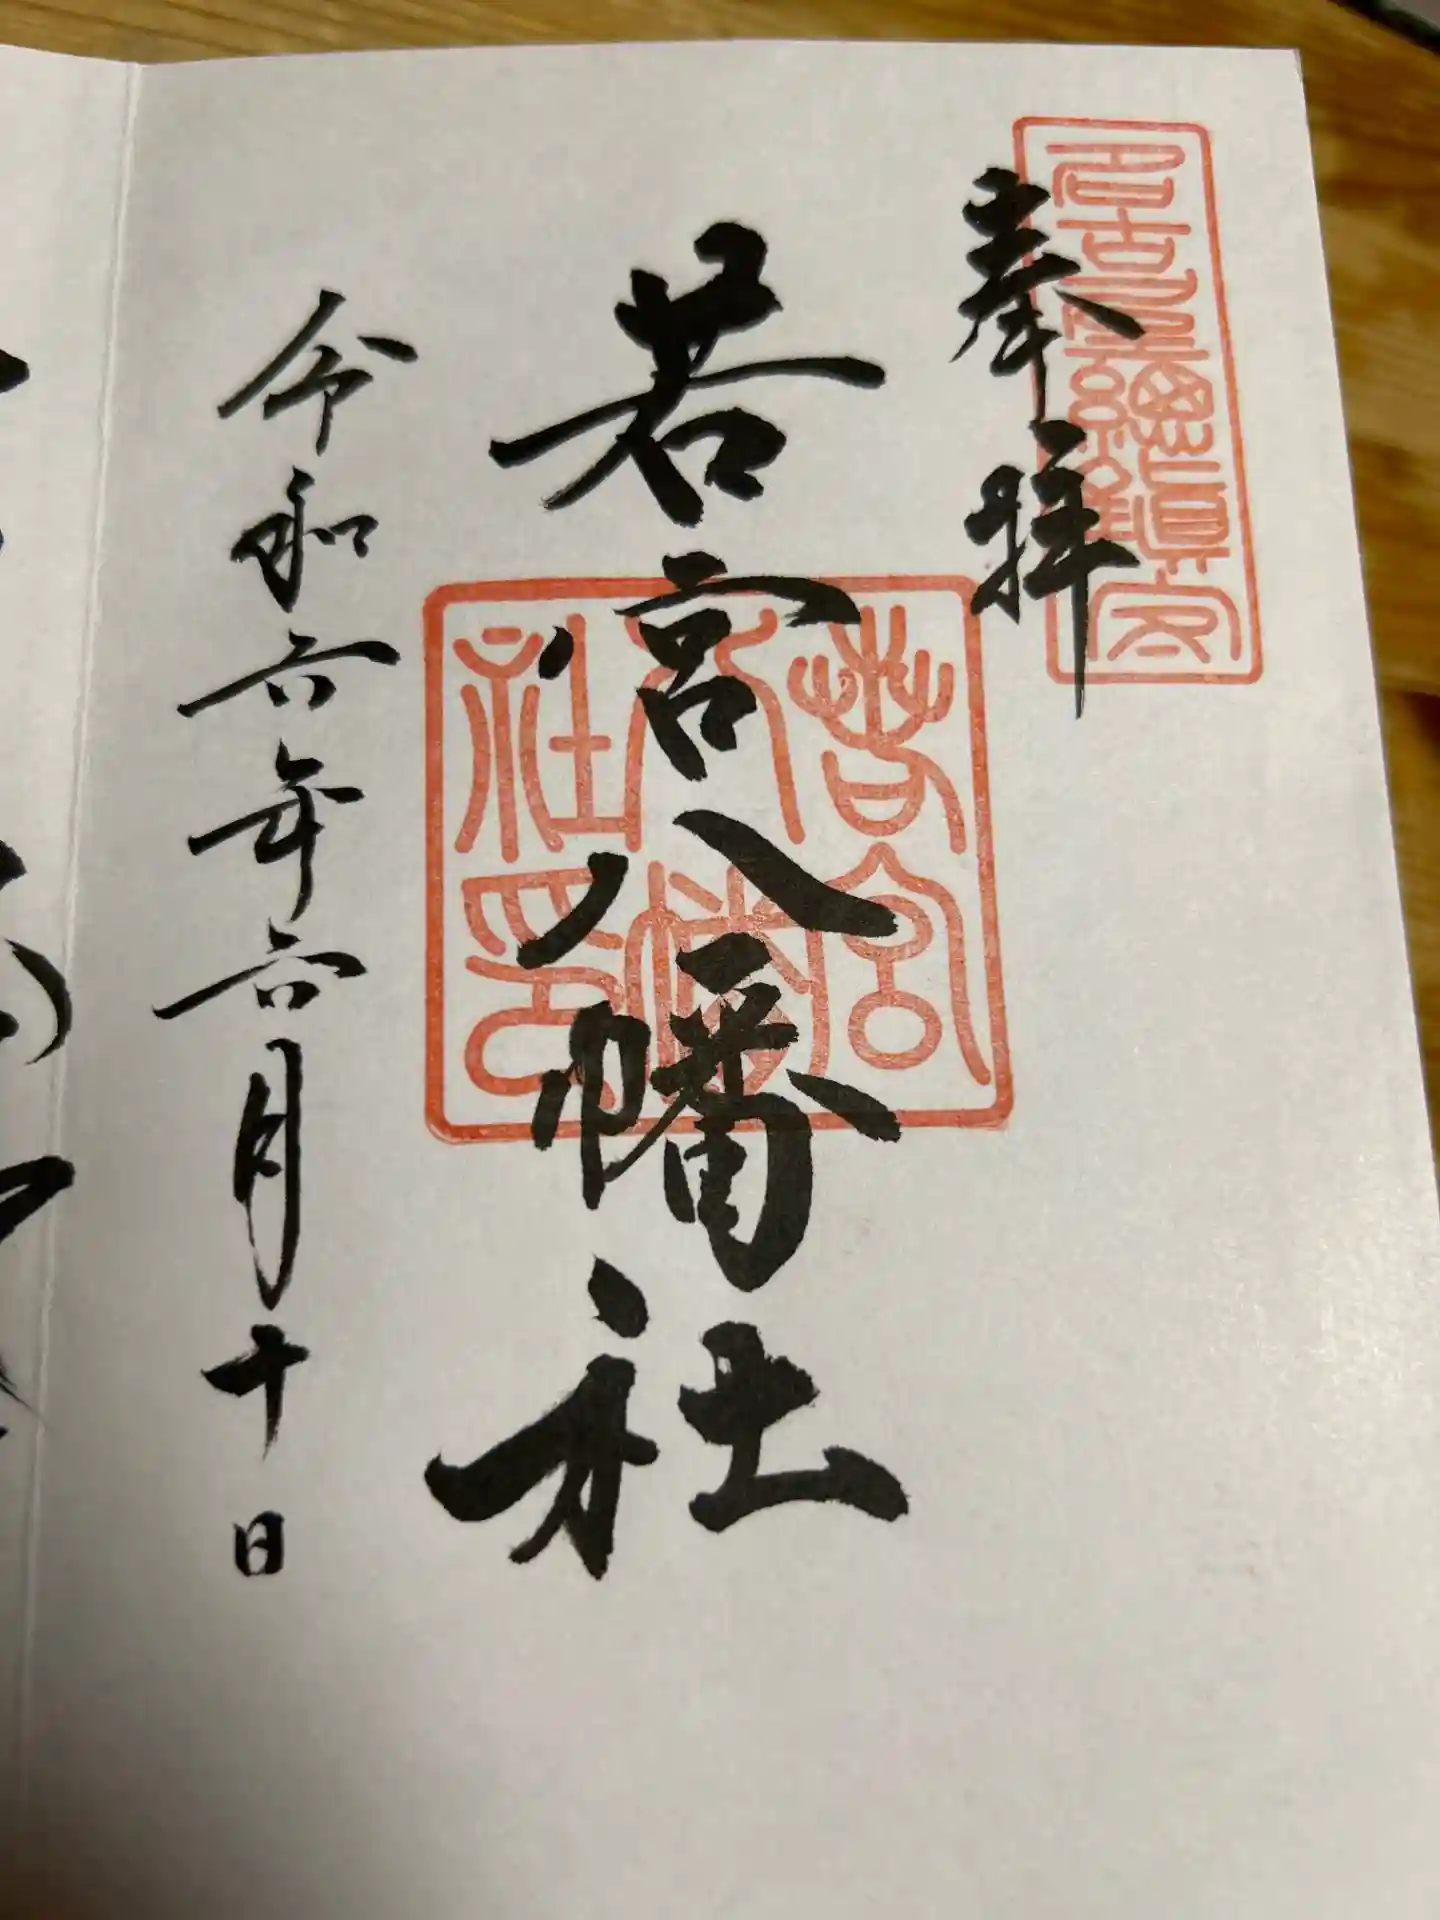 奉拝
名古屋総鎮守
若宮八幡社
若宮八幡社印
令和六年六月十日